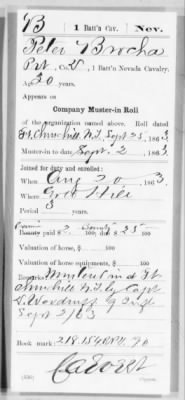 B 1 Batt'n Cav. Nev.
Peter Brocha
Pvt, Co. D, 1 Batt'n Nevada Cavalry.
Age 30 years.
Appears on
Company Muster-in Roll
of the organization named above. Roll dated
Ft. Churchill N.T., Sept 25, 1863
Muster-in to date Sept. 2, 1863
Joined for duty and enrolled:
When Aug 20, 1863.
Where
Period 3 years.
Bounty paid $ 2 ; due $ 25
Valuation of horse, $ 100
Valuation of horse equipments, $ 100
Remarks: in at Ft
Churchill N.T. by Capt
Sept 2/63
Book mark:
(536) Copyist.